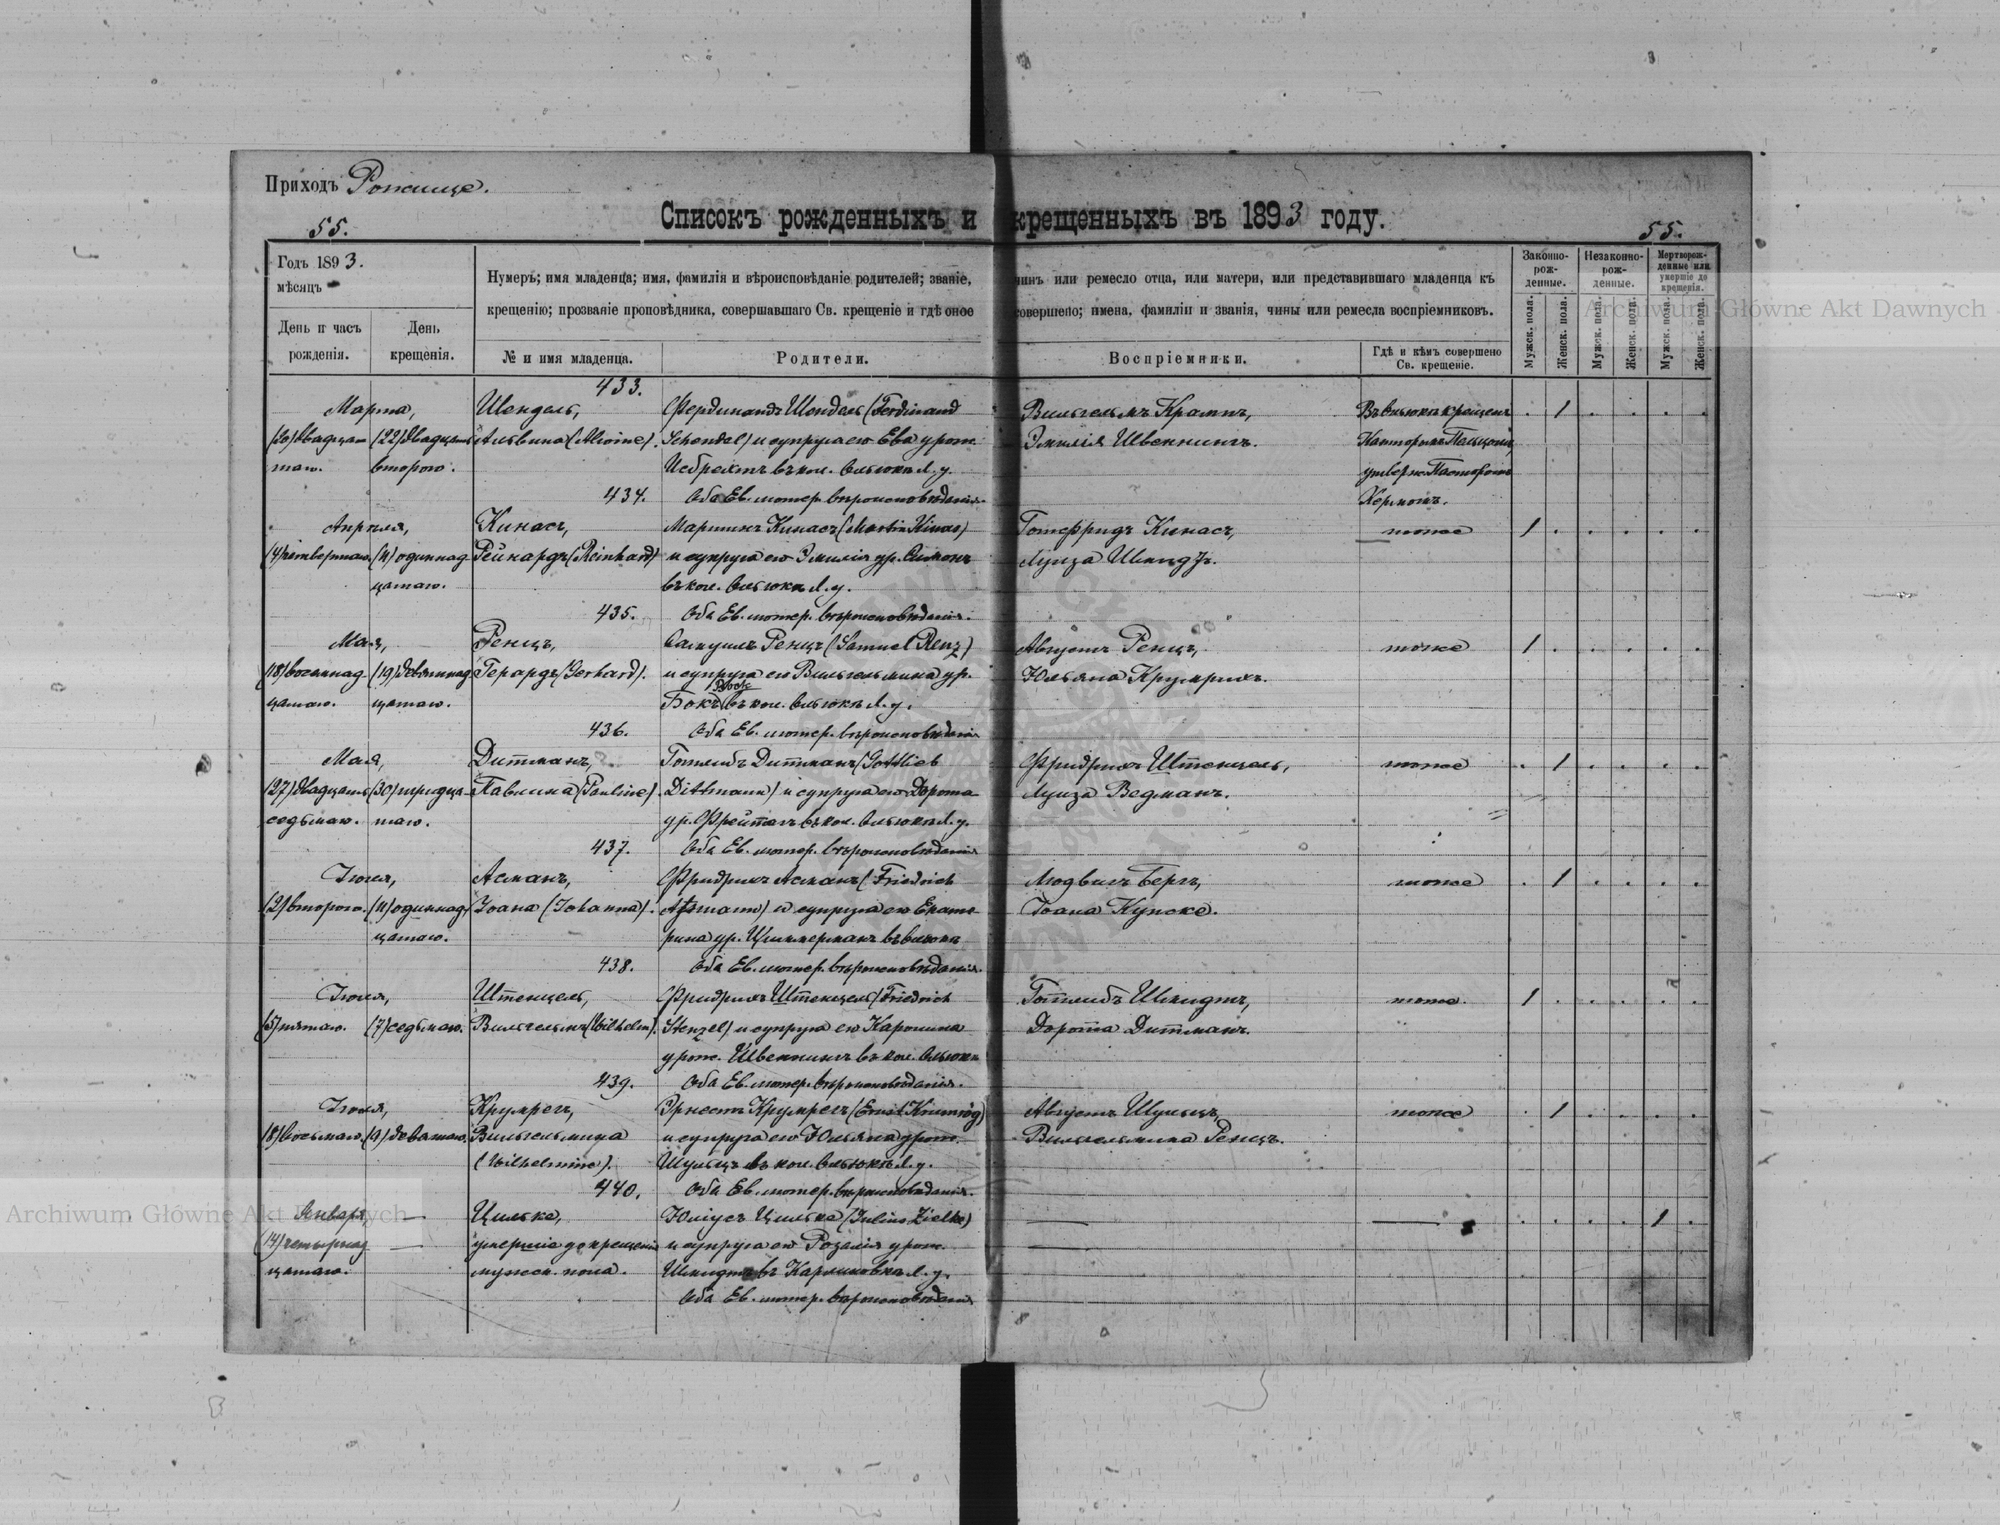 Приходъ Рожище.
Списокъ рожденныхъ и крещенныхъ въ 1893 году.
55.
55.
Годъ 1893.
мѣсяцъ
Нумеръ; имя младенца; имя, фамилія и вѣроисповѣданіе родителей; званіе, чинъ или ремесло отца, или матери, или представившаго младенца къ
крещенію; прозваніе проповѣдника, совершавшаго Св. крещеніе и гдѣ оное совершено; имена, фамиліи и званія, чины или ремесла воспріемниковъ.
День и часъ рожденія.
День крещенія.
№ и имя младенца.
Родители.
Воспріемники.
Гдѣ и кѣмъ совершено Св. крещеніе.
Законно-рож-денные.
Незаконно-рож-денные.
Мертворож-денные или умершіе до крещенія.
Мужск. пола. Женск. пола. Мужск. пола. Женск. пола. Мужск. пола. Женск. пола.
433.
Марта, Шендель, Фердинандъ Шендель (Ferdinand Вильгельмъ Крампъ, . 1 . . . .
(20) двадцатаго. (22) двадцать второго. Альвина (Alwine). Schendel) и супруга его Ева урож. Эмилія Швеннингъ.
въ кол. Л. у.
434. Оба Ев. лютер. вѣроисповѣданія.
Апрѣля, Кинасъ, Мартинъ Кинасъ (Martin Kinas) Готфридъ Кинасъ, тоже 1 . . . . .
(4) четвертаго. (11) одиннадцатаго. Рейнардъ (Reinhard) и супруга его Эмилія ур. Симонъ Луиза Шмидтъ.
въ кол. Л. у.
435. Оба Ев. лютер. вѣроисповѣданія.
Мая, Ренцъ, Самуилъ Ренцъ (Samuel Renz) Августъ Ренцъ, тоже 1 . . . . .
(18) восемнадцатаго. (19) девятнадцатаго. Герардъ (Gerhard). и супруга его Вильгельмина ур. Юльяна Крумрихъ.
Бокъ въ кол. Л. у.
436. Оба Ев. лютер. вѣроисповѣданія
Мая, Дитманъ, Готлибъ Дитманъ (Gottlieb Фридрихъ Штенцель, тоже . 1 . . . .
(27) двадцать седьмаго. (30) тридцатаго. Павлина (Pauline). Dittmann) и супруга его Дорота Луиза Ведманъ.
ур. Фрейтагъ въ кол. Л. у.
437. Оба Ев. лютер. вѣроисповѣданія
Іюня, Асманъ, Фридрихъ Асманъ (Friedrich Людвигъ Бергъ, тоже . 1 . . . .
(2) второго. (11) одиннадцатаго. Іоана (Johanna). Assmann) и супруга его Екате- Іоана Купске.
рина ур. Циммерманъ
438. Оба Ев. лютер. вѣроисповѣданія.
Іюня, Штенцель, Фридрихъ Штенцель (Friedrich Готлибъ Шмидтъ, тоже. 1 . . . . .
(5) пятаго. (7) седьмаго. Вильгельмъ (Wilhelm). Stenzel) и супруга его Каролина Дорота Дитманъ.
урож. Швеннингъ въ кол.
439. Оба Ев. лютер. вѣроисповѣданія.
Іюня, Крумрегъ, Эрнестъ Крумрегъ (Ernst Krumreg) Августъ Шульцъ, тоже . 1 . . . .
(8) восьмаго. (9) девятаго. Вильгельмина и супруга его Юльяна урож. Вильгельмина Ренцъ.
(Wilhelmine). Шульцъ въ кол. Л. у.
440. Оба Ев. лютер. вѣроисповѣданія.
Января, — Цильке, Юліусъ Цильке (Julius Zielke) — — . . . . 1 .
(14) четырнадцатаго. — умершіе до крещенія и супруга его Розалія урож. —
мужск. пола. Шмидтъ въ Карлиновка Л. у.
Оба Ев. лютер. вѣроисповѣданія
Archiwum Główne Akt Dawnych
Archiwum Główne Akt Dawnych